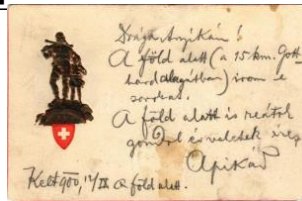 Drága Anyikám!
A föld alatt (a 15 km. Gott-
hard alagútban) irom e
sorokat.
A föld alatt is reátok
gondol és veletek
Apikád
Kelt 900, 12/IX A föld alatt.